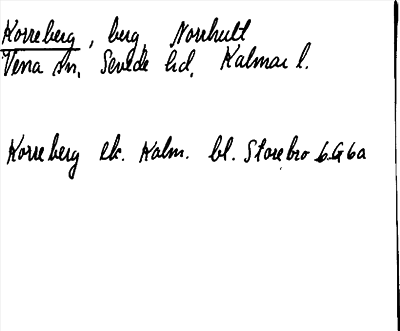 Korreberg, berg, Norrhult
Vena sn, Sevede hd, Kalmar l.
Korreberg ek. Kalm. bl. Storebro 6G6a